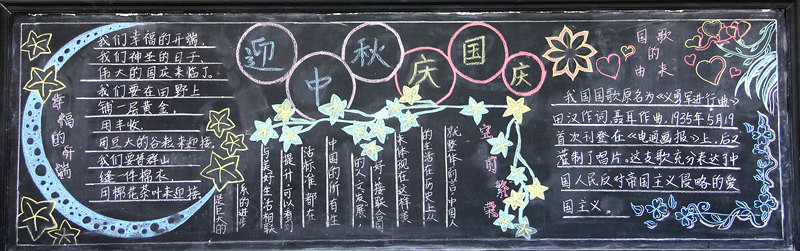 迎中秋庆国庆
幸福的开端
我们幸福的开端,
我们神圣的日子、
伟大的国庆来临了。
我们要在田野上
铺一层黄金,
用丰收、
用巨大的谷粒来迎接.
我们要替群山
缝一件棉衣,
用棉花茶叶来迎接.
空前的繁荣
就整体而言,中国人
的生活在历史上从
未体现在这样美
好,接联合国
的人文发展,
中国的所有生
活标准都在
提升,可以看到
与美好生活相联
系的进步
是巨大的
国歌的由来
我国国歌原名为《义勇军进行曲》
田汉作词,聂耳作曲,1935年5月19
首次刊登在《电通画报》上,后又
灌制了唱片。这支歌充分表达了中
国人民反对帝国主义侵略的爱
国主义。